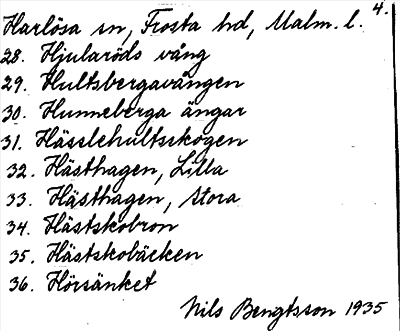 4.
Harlösa sn, Frosta hd, Malm. l.
28. Hjularöds vång
29. Hultsbergavången
30. Hunneberga ängar
31. Hässlehultsskogen
32. Hästhagen, Lilla
33. Hästhagen, Stora
34. Hästskobron
35. Hästskobäcken
36. Hörsänket
Nils Bengtsson 1935